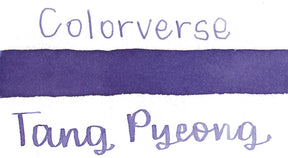 Colorverse
Tang Pyeong